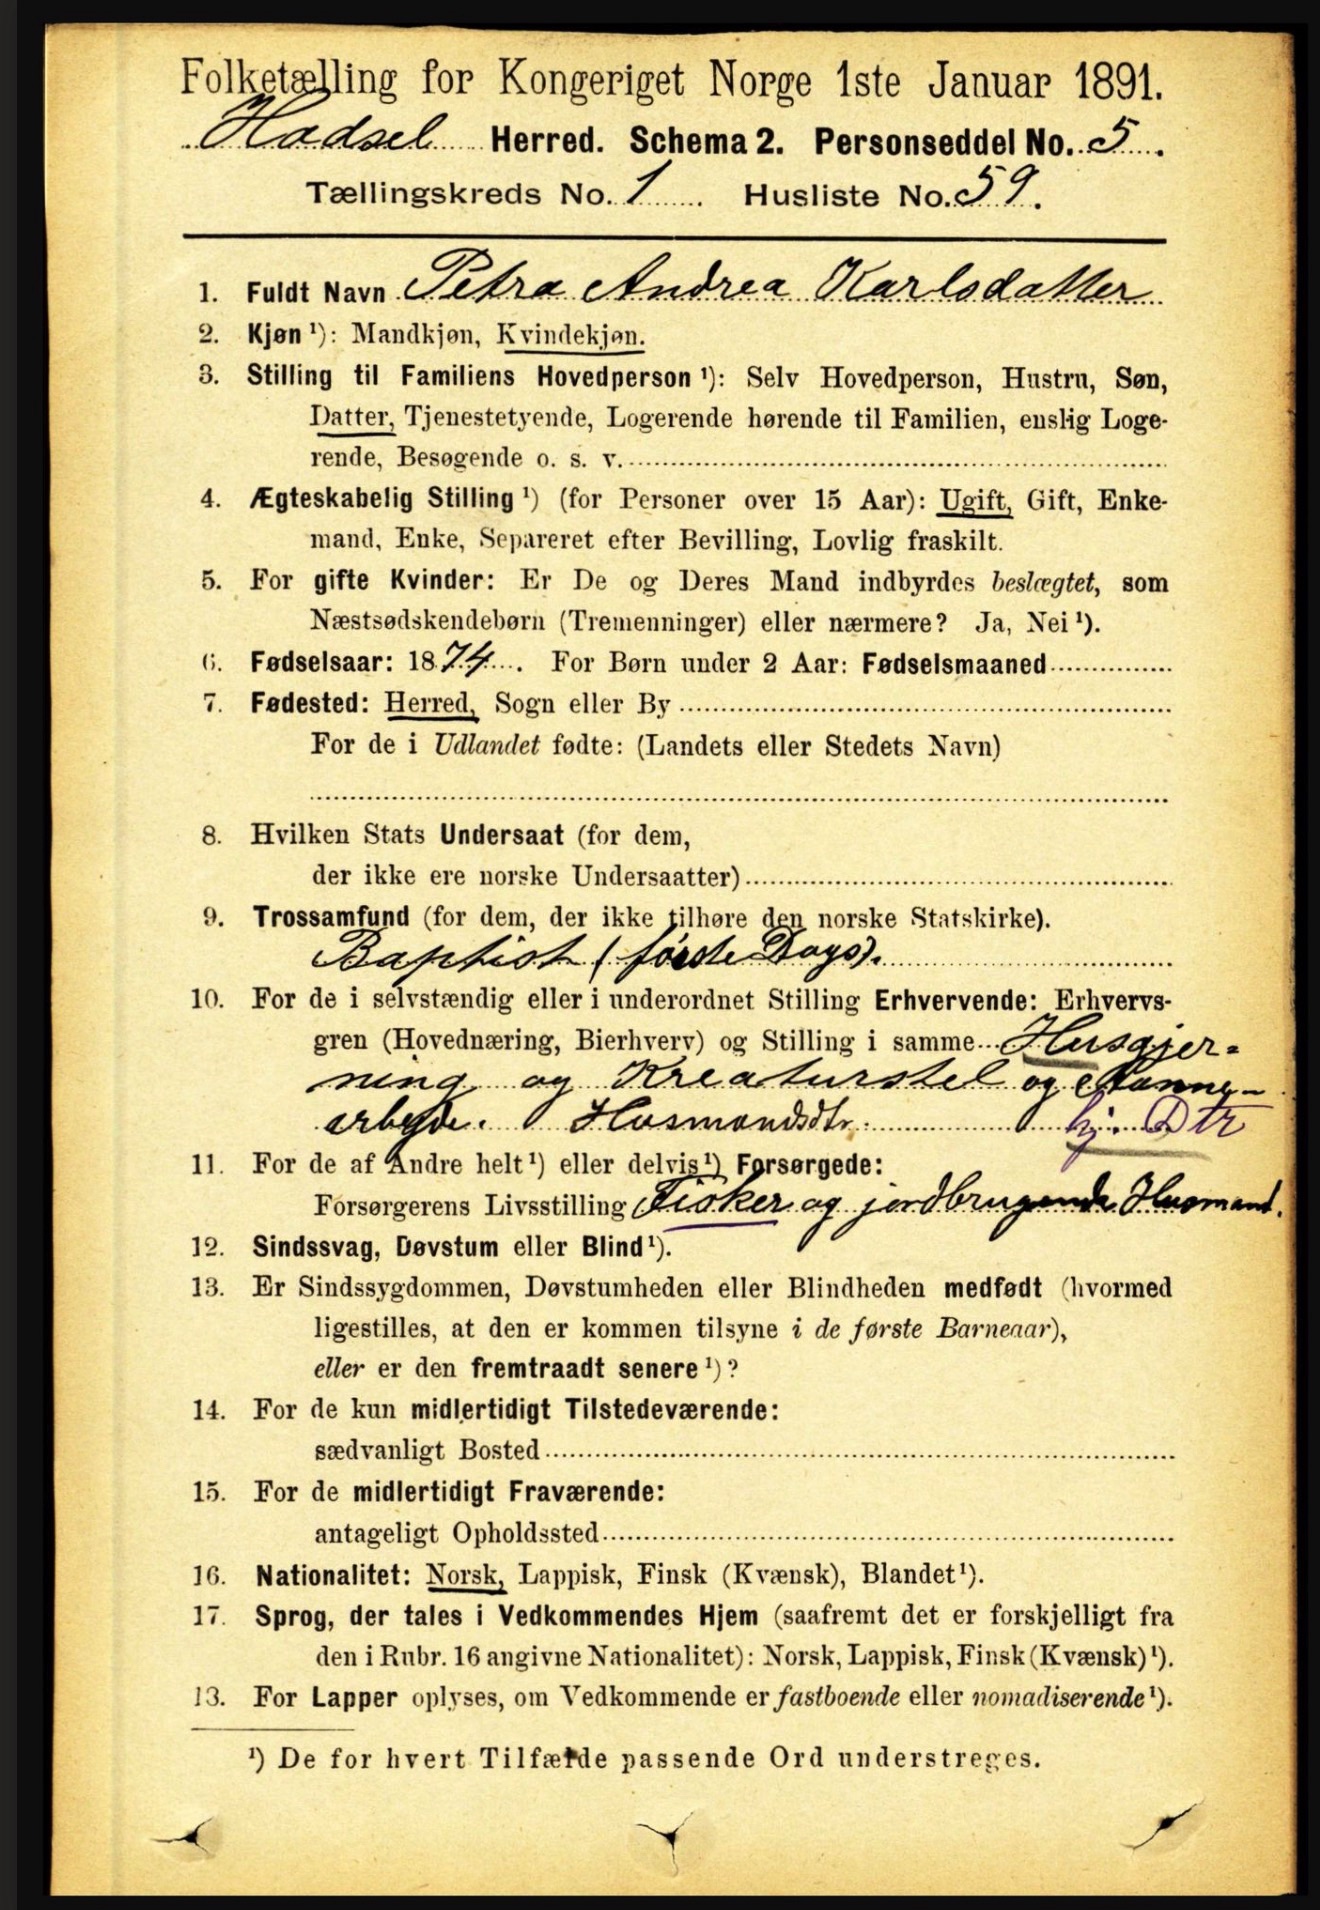 Folketælling for Kongeriget Norge 1ste Januar 1891.
Hadsel Herred. Schema 2. Personseddel No. 5.
Tællingskreds No. 1. Husliste No. 59.
1. Fuldt Navn Petra Andrea Karlsdatter
2. Kjøn ¹): Mandkjøn, Kvindekjøn.
3. Stilling til Familiens Hovedperson ¹): Selv Hovedperson, Hustru, Søn,
Datter, Tjenestetyende, Logerende hørende til Familien, enslig Loge-
rende, Besøgende o. s. v.
4. Ægteskabelig Stilling ¹) (for Personer over 15 Aar): Ugift, Gift, Enke-
mand, Enke, Separeret efter Bevilling, Lovlig fraskilt.
5. For gifte Kvinder: Er De og Deres Mand indbyrdes beslægtet, som
Næstsødskendebørn (Tremenninger) eller nærmere? Ja, Nei ¹).
6. Fødselsaar: 1874. For Børn under 2 Aar: Fødselsmaaned
7. Fødested: Herred, Sogn eller By
For de i Udlandet fødte: (Landets eller Stedets Navn)
8. Hvilken Stats Undersaat (for dem,
der ikke ere norske Undersaatter)
9. Trossamfund (for dem, der ikke tilhøre den norske Statskirke).
Baptist (første Dags).
10. For de i selvstændig eller i underordnet Stilling Erhvervende: Erhvervs-
gren (Hovednæring, Bierhverv) og Stilling i samme Husgjer-
ning og Kreaturstel og
arbeyde. Husmandsdtr. hj. Dtr
11. For de af Andre helt ¹) eller delvis ¹) Forsørgede:
Forsørgerens Livsstilling Fisker og jordbrugende Husmand.
12. Sindssvag, Døvstum eller Blind ¹).
13. Er Sindssygdommen, Døvstumheden eller Blindheden medfødt (hvormed
ligestilles, at den er kommen tilsyne i de første Barneaar),
eller er den fremtraadt senere ¹)?
14. For de kun midlertidigt Tilstedeværende:
sædvanligt Bosted
15. For de midlertidigt Fraværende:
antageligt Opholdssted
16. Nationalitet: Norsk, Lappisk, Finsk (Kvænsk), Blandet ¹).
17. Sprog, der tales i Vedkommendes Hjem (saafremt det er forskjelligt fra
den i Rubr. 16 angivne Nationalitet): Norsk, Lappisk, Finsk (Kvænsk) ¹).
13. For Lapper oplyses, om Vedkommende er fastboende eller nomadiserende ¹).
¹) De for hvert Tilfælde passende Ord understreges.